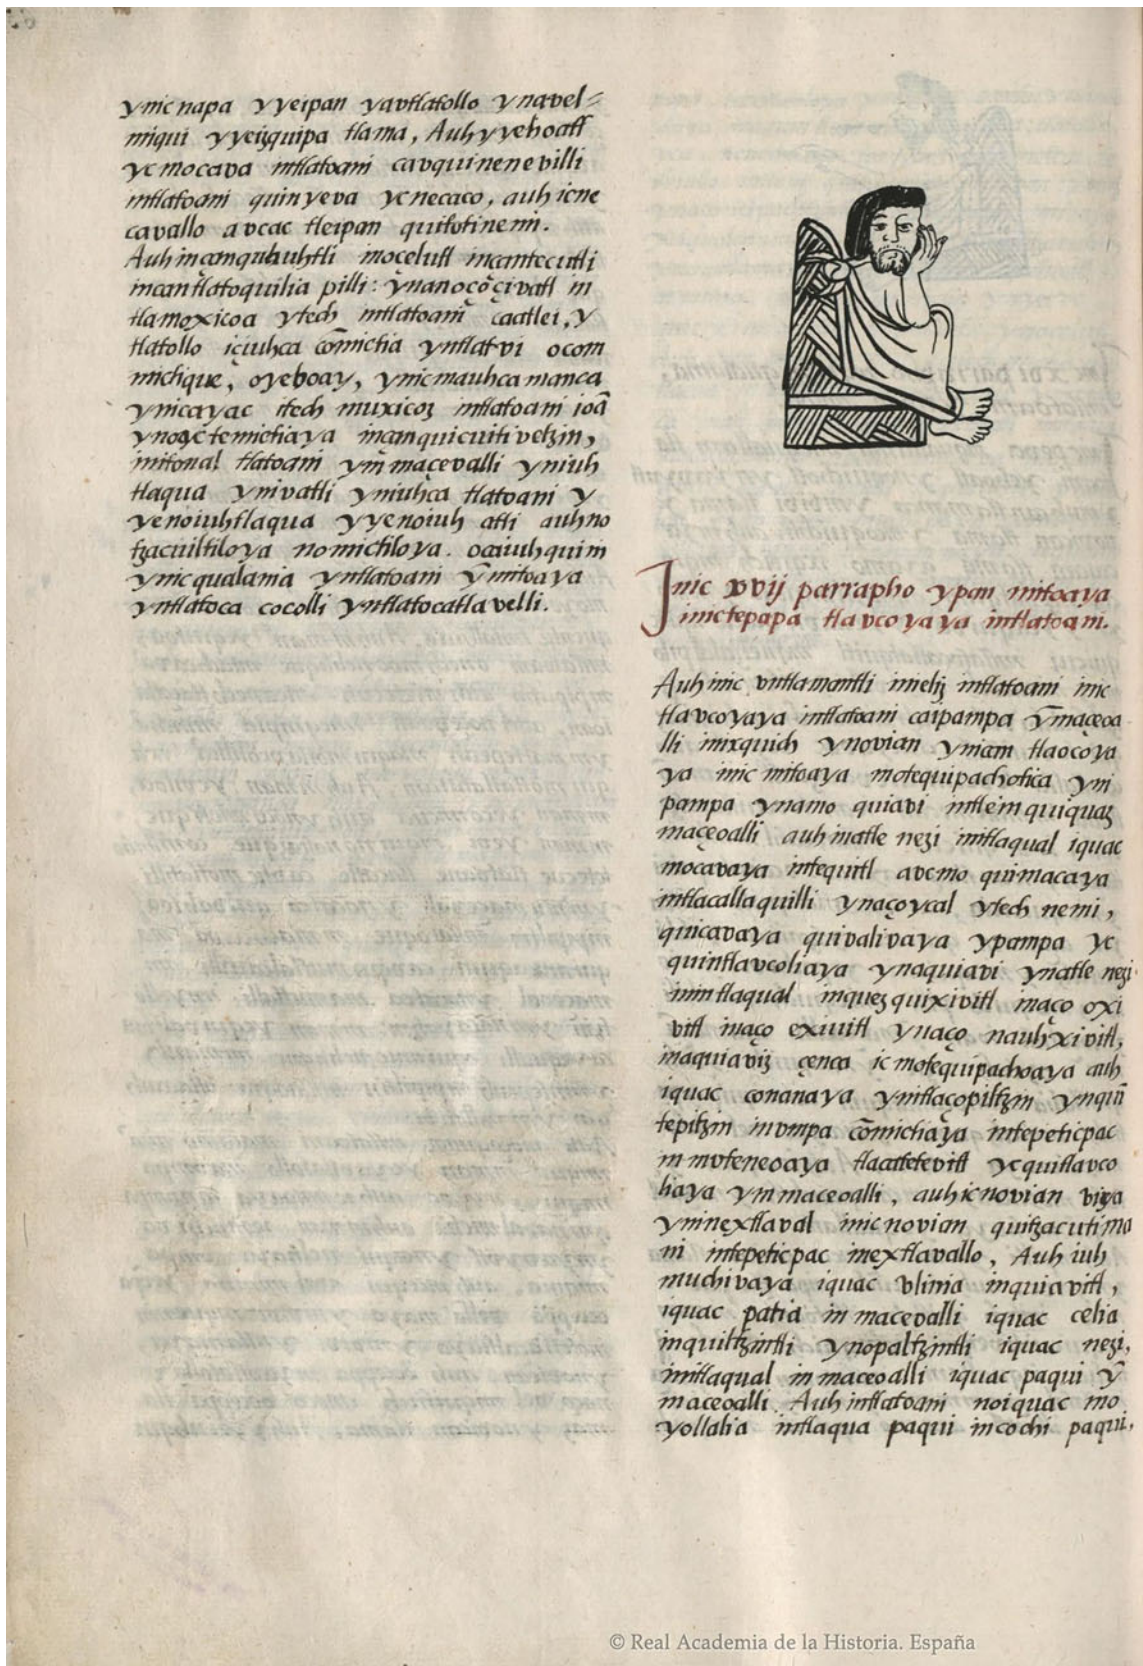 ynic napa yyeipan yavtlatollo ynavel=
miqui yyeizquipa tlama, Auh yyehoatl
yc mocava intlatoani cavquinenevilli
intlatoani quin yeva yc necaco, auh icne
cavallo avcac tleipan quitotinemi.
Auh inçamquhuhtli inoçelutl incantecutli
incantlatoquilia pilli: ynanoço çivatl in
tlamoxicoa ytech intlatoani caatlei, y
tlatollo içiuhca cōmictia yntlatvi ocom
mictique, oyehoay, ynicmauhca manca
ynicayac itech muxicoz intlatoani ioā
ynoyc temictiaya incamquicuitivetzin,
initonal tlatoani ym̄ maçevalli yniuh
tlaqua ynivatli yniuhca tlatoani y
yenoiuhtlaqua yyenoiuh atli auh no
tzacuiltiloya nomictiloya. ocaiuhquim
ynic qualania yntlatoani ȳ mitoaya
yntlatoca cocolli yntlatocatlavelli.
Inic xvij parrapho ypan mitoaya
inictepapa tlavcoyaya intlatoani.
Auh inic vntlamantli inieliz intlatoani inic
tlavcoyaya intlatoani caipampa ȳmaçeoa
lli inixquich ynovian yniam tlaocoya
ya inic mitoaya motequipachotica yni
pampa ynamo quiavi intlein quiquaz
maçeoalli auh inatle nezi intlaqual iquac
mocavaya intequitl avcmo quimacaya
intlacallaquilli ynaçoycal ytech nemi,
quicavaya quivalivaya ypampa yc
quintlavcoliaya ynaquiavi ynatle nezi
inintlaqual inquezquixivitl inaço oxi
vitl inaço exivitl ynaço nauhxivitl,
inaquiaviz çenca ic motequipachoaya auh
iquac conanaya ynitlaçopiltzin ynquin̄
tepitzin invmpa cōmictiaya intepeticpac
in moteneoaya tlacatetevitl yc quitlavco
liaya ym maceoalli, auh ic novian viya
yninextlaval inic novian quitzacutima
ni intepeticpac inextlavallo, Auh iuh
muchivaya iquac vlinia inquiavitl,
iquac patia in macevalli iquac celia
inquiltzintli ynopaltzintli iquac nezi,
initlaqual in maceoalli iquac paqui ȳ
maceoalli. Auh intlatoani noiquac mo
yollalia intlaqua paqui in cochi paqui,
© Real Academia de la Historia. España